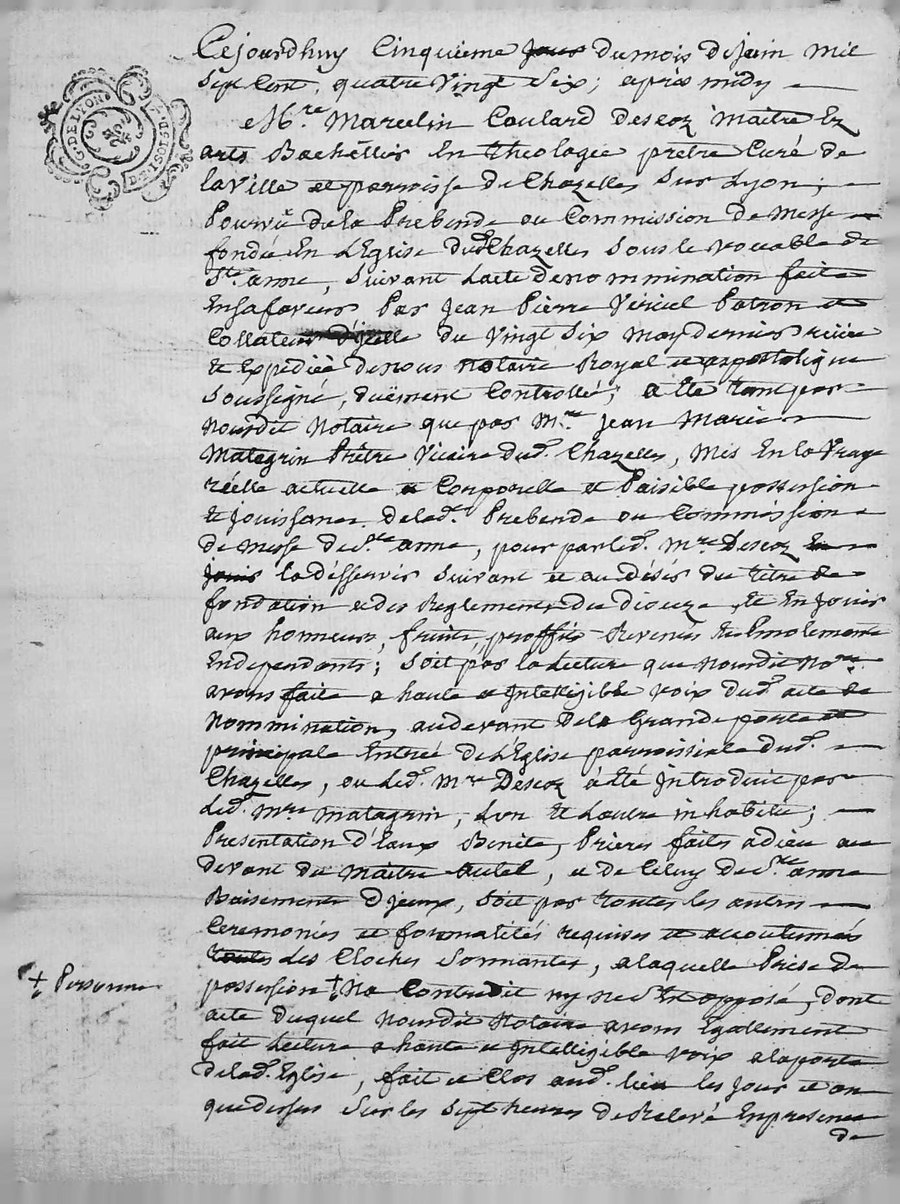 G. DE LYON
D. T. 1 SOL 8 D. P. F.
Cejourdhuy Cinquieme jour dumois dejuin mil
Sept Cent, quatre Vingt Six; apres midy
Mre. Marcelin Coulard Descoz maitre Ez
arts Bachellier En theologie prêtre Curé de
la Ville et paroisse de Chazelles Sur Lyon;
Pourvû de la Prebende ou Commission de Messe
fondée En L'Eglise dud. Chazelles Sous le vocable de
Ste. anne, Suivant L'acte de nommination faite
En sa faveur Par Jean Pierre Vericel Patron et
Collateur d'jcelle du Vingt Six may dernier reçüe
et Expediée de nous notaire Royal et apostolique
Soussigné, duëment Controllé; a Eté tant par
nousdit Notaire que par Mre. Jean Marie
Matagrin Prêtre Vicaire dud. Chazelles, Mis En la Vraye
réelle actuelle et Corporelle et Paisible possession
et jouissance delad. Prebende ou Commission
de messe de Ste. anne, pour par led. Mre Descoz En
jouir la désservir suivant et au désir du titre de
fondation et des Reglements du dioceze, et En jouir
aux honneurs, fruits, proffits Revenus et Emolements
Endependants; Soit par la Lecture que nousdit Nore.
avons faite a haute et Intelligible voix dud. acte de
Nommination, audevant de la Grande porte et
principale Entrée de L'Eglise parroissiale dud.
Chazelles, ou led. Mre Descoz à Eté Introduit par
led. Mre matagrin, L'un et L'autre in habitu;
Présentation d'Eaux Benite, Prieres faits a dieu au
devant du maitre Autel, et de Celuy de Ste. anne
Baisement d'jceux, Soit par toutes les autres
Ceremonies et formalités requises et accoutumés
toutes les Cloches Sonnantes, alaquelle Prise de
possession ‡ Na Contredit ny ne s'Est opposé, dont
‡ Personne
acte duquel nousdit Notaire avons Egallement
fait Lecture a haute et Intelligible voix a la porte
delad. Eglise, fait et Clos aud. lieu les Jour et an
que dessus Sur les Sept heures de Relevé En presence
de